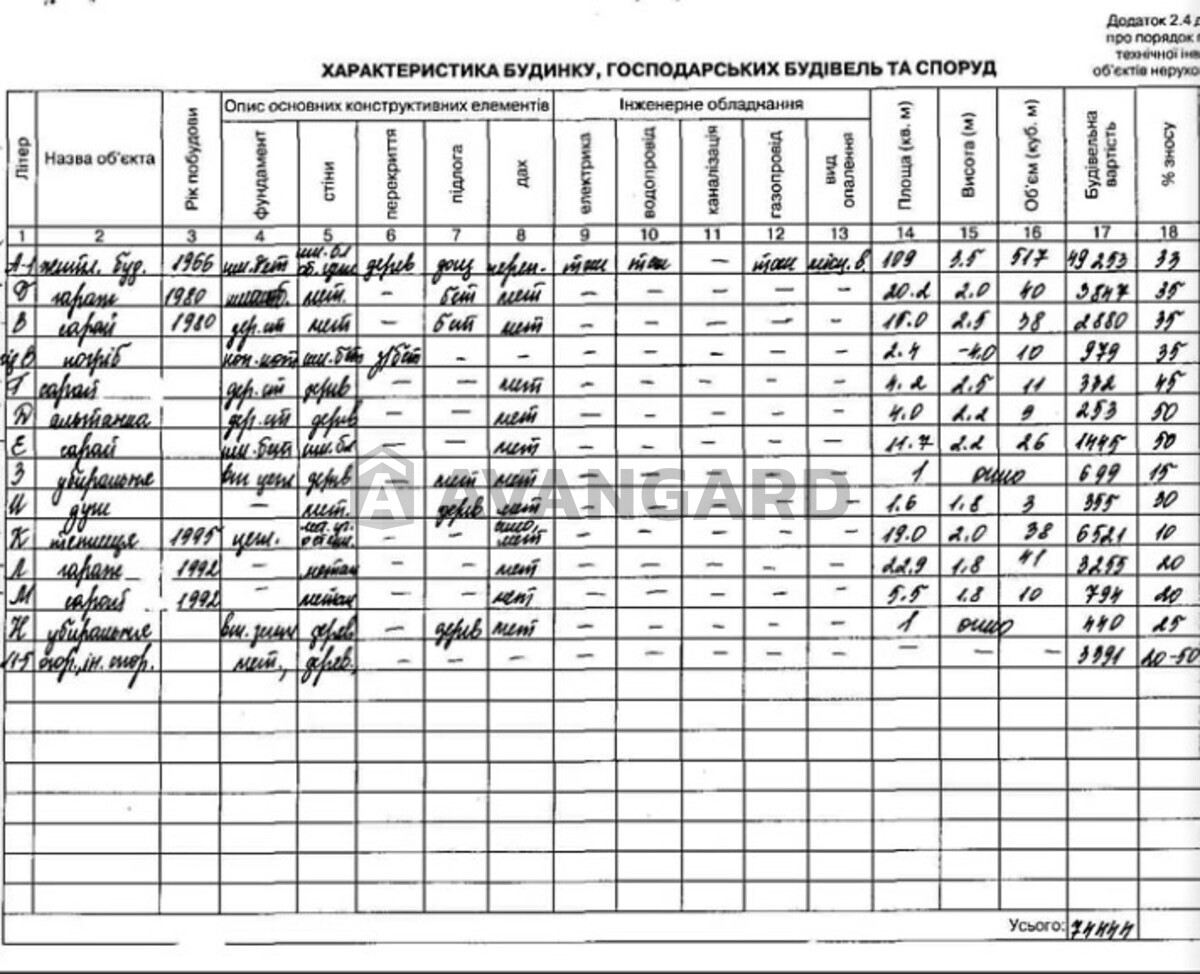 Додаток 2.4 д
про порядок
технічної інв
об'єктів нерухо
ХАРАКТЕРИСТИКА БУДИНКУ, ГОСПОДАРСЬКИХ БУДІВЕЛЬ ТА СПОРУД
Літер Назва об'єкта Рік побудови Опис основних конструктивних елементів Інженерне обладнання Площа (кв. м) Висота (м) Об'єм (куб. м) Будівельна вартість % зносу
фундамент стіни перекриття підлога дах електрика водопровід каналізація газопровід вид опалення
1 2 3 4 5 6 7 8 9 10 11 12 13 14 15 16 17 18
А-1 житл. буд. 1966 дерев – 109 3.5 517 49 253 33
гараж 1980 мет. – бет мет – – – – – 20.2 2.0 40 3847 35
В сарай 1980 мет – бет мет – – – – – 15.0 2.5 38 2880 35
В погріб шл. бет – – – – – – – 2.4 -4.0 10 979 35
Г сарай дерев – – мет – – – – – 4.2 2.5 11 332 45
альтанка дерев – – мет – – – – – 4.0 2.2 9 253 50
Е сарай шл. бет шл. бл – – мет – – – – – 11.7 2.2 26 1445 50
З убиральня дерев – мет – – – – – 1 699 15
И душ – мет. – дерев мет – – – – – 1.6 1.8 3 355 30
К теплиця 1995 цегл. – – мет – – – – – 19.0 2.0 38 6521 10
Л гараж 1992 – метал – – мет – – – – – 22.9 1.8 41 3255 20
М сарай 1992 – метал – – мет – – – – – 5.5 1.8 10 794 20
Н убиральня дерев – дерев мет – – – – – 1 440 25
1-5 огор., ін. спор. мет., дерев. – – – – – – – – – – – 3391 20-50
AVANGARD
Усього: 74444